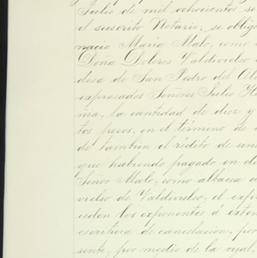 Julio de mil ochocientos se
el suscrito Notario, se oblig
nacio Maria Malo, como
Doña Dolores Valdivielso
desa de San Pedro del Al
expresados Señores Julio
ma, la cantidad de diez y
tos pesos, en el término de
de tambien el rédito de un
que habiendo pagado en el
Señor Malo, como albacea
vielso de Valdivielso, el exp
cedan los exponentes á exten
escritura de cancelacion, por
sente, por medio de la cual,